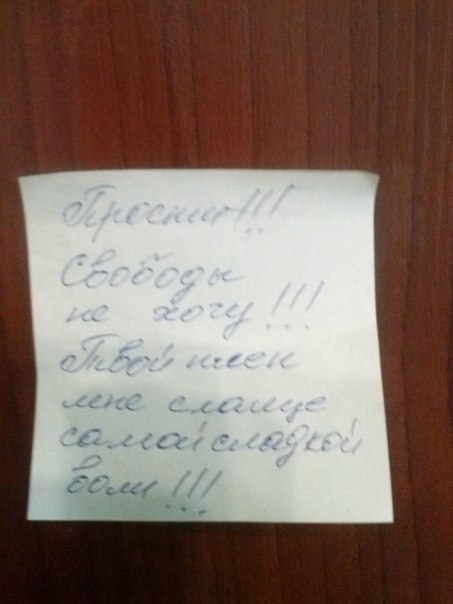 Простит!!!
Свободы
не хочу!!!
Твой плен
мне слаще
самой сладкой
воли!!!